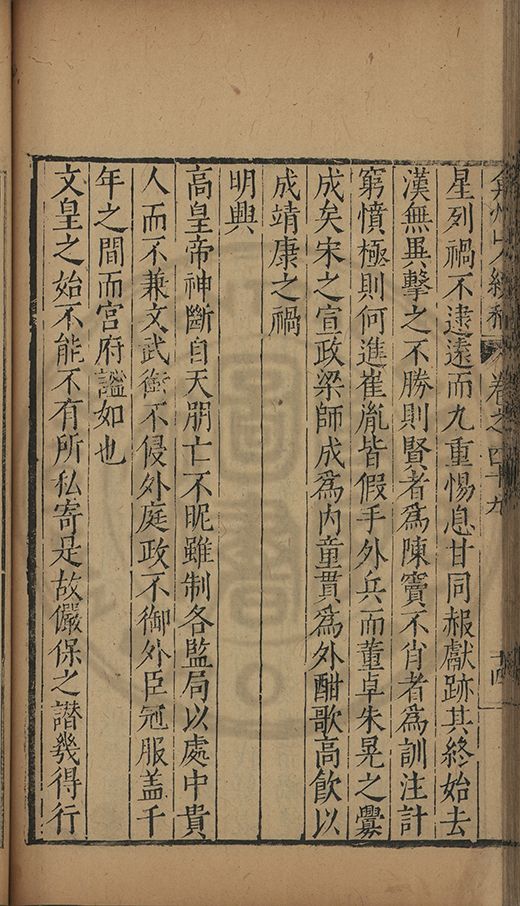 弇州山人續稿 卷之四十九 十四
星列禍不逮遠而九重惕息甘同赧獻跡其終始去
漢無異擊之不勝則賢者為陳竇不肖者為訓注計
窮憤極則何進崔胤皆假手外兵而董卓朱晃之釁
成矣宋之宣政梁師成為內童貫為外酣歌高飲以
成靖康之禍
明興
高皇帝神斷自天朋亡不昵雖制各監局以處中貴
人而不兼文武銜不侵外庭政不御外臣冠服蓋千
年之間而宮府謐如也
文皇之始不能不有所私寄是故儼保之譖幾得行